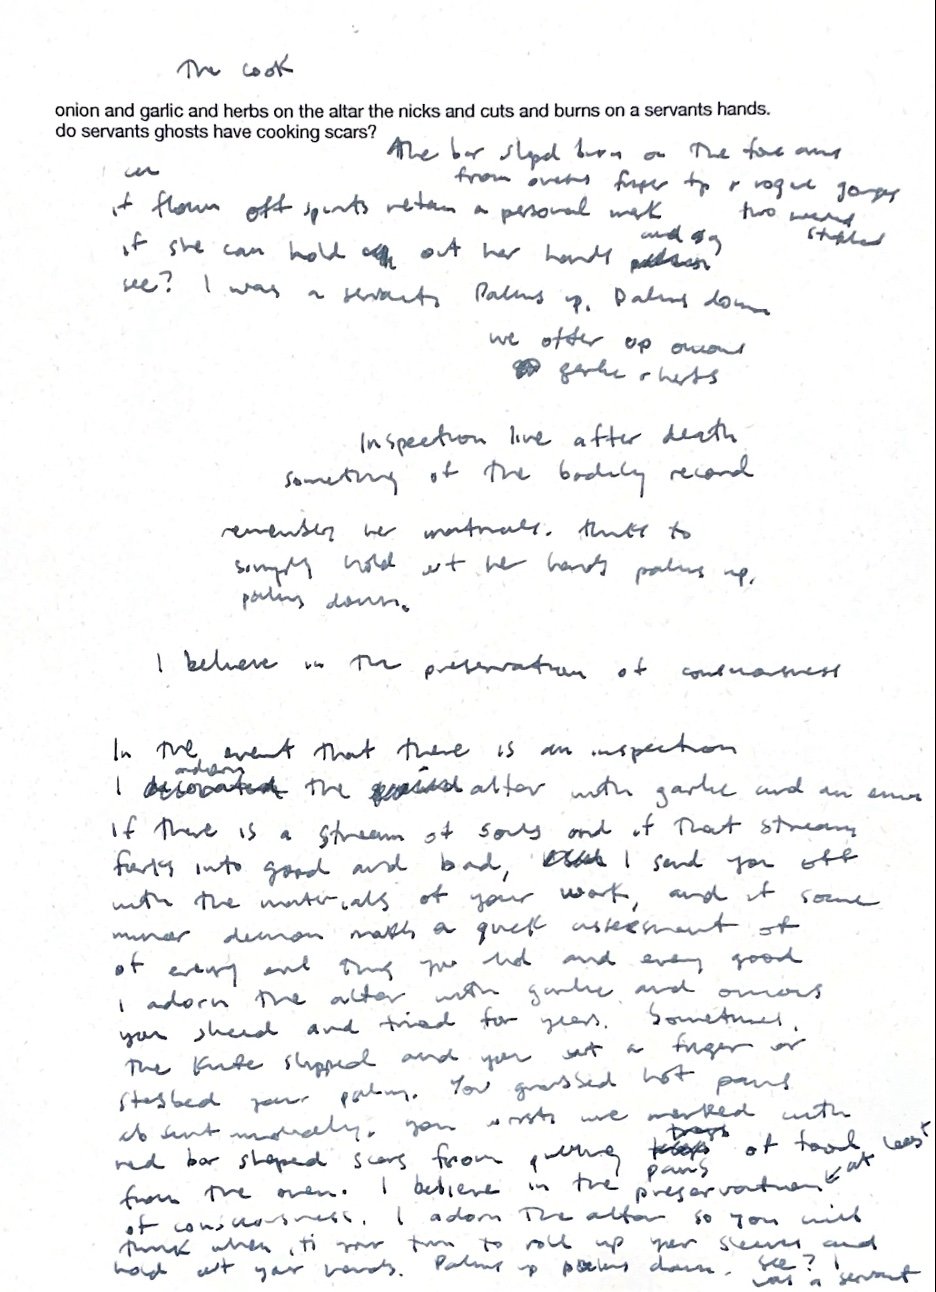 The cook
onion and garlic and herbs on the altar the nicks and cuts and burns on a servants hands.
do servants ghosts have cooking scars?
The bar shped burn on the fore arms
from ovens finger tip & rogue
it flown off spirits retain a personal mark two
if she can hold out her hands and
see? I was a servant, Palms up. Palms down
we offer up onions
garlic & herbs
Inspection live after death
something of the bodily record
remembers her materials. thinks to
simply hold out her hands palms up,
palms down.
I believe in the preservation of consciousness
In the event that there is an inspection
I adorn the altar with garlic and an onion
if there is a stream of souls and if that stream
forks into good and bad, I send you off
with the materials of your work, and if some
minor demon makes a quick assessment of
of every evil thing you did and every good
I adorn the altar with garlic and onions
you sliced and fried for years. Sometimes,
the knife slipped and you cut a finger or
stabbed your palm. You grabbed hot pans
absent mindedly. your wrists are marked with
red bar shaped scars from pulling trays pans of food
from the oven. I believe in the preservation
of consciousness. I adorn the altar so you will
think when it is your turn to roll up your sleeves and
hold out your hands. Palms up palms down. see? I
was a servant